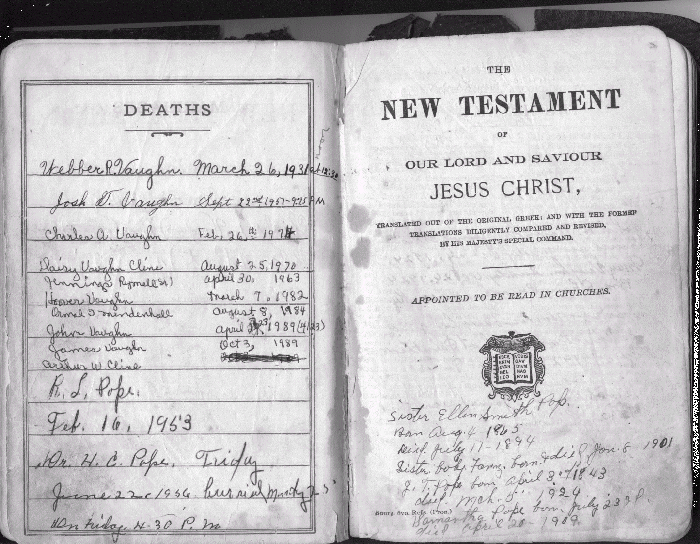 DEATHS
Webber R. Vaughn. March 26, 1931 at 12:30
noon
Josh T. Vaughn Sept 22nd 1957-9:25 P.M
Charles A. Vaughn Feb. 26th 1974
Daisy Vaughn Cline August 25, 1970
Jennings April 30, 1963
Homer Vaughn March 7, 1982
Ormel T Mendenhall August 8, 1984
John Vaughn April 1989 (4/23)
James Vaughn Oct 3, 1989
Arthur W Cline
R. L. Pope.
Feb. 16, 1953
Dr. H. C. Pope. Friday
June 22 1956. burial Monday 25
on Friday. 4-30 P. M
THE
NEW TESTAMENT
OF
OUR LORD AND SAVIOUR
JESUS CHRIST,
TRANSLATED OUT OF THE ORIGINAL GREEK: AND WITH THE FORMER
TRANSLATIONS DILIGENTLY COMPARED AND REVISED,
BY HIS MAJESTY'S SPECIAL COMMAND.
APPOINTED TO BE READ IN CHURCHES.
Sister Ellen Smith Pop.
Born Aug. 4 1865
Died July 11-1894
Sister born & died Jan. 8 1901
J. T. Pope born April 3rd 1843
died Mch. 5" 1924
Bourg. 8vo. Refs. (Pron.)
Samantha Pope born July 23
died April 20 1909